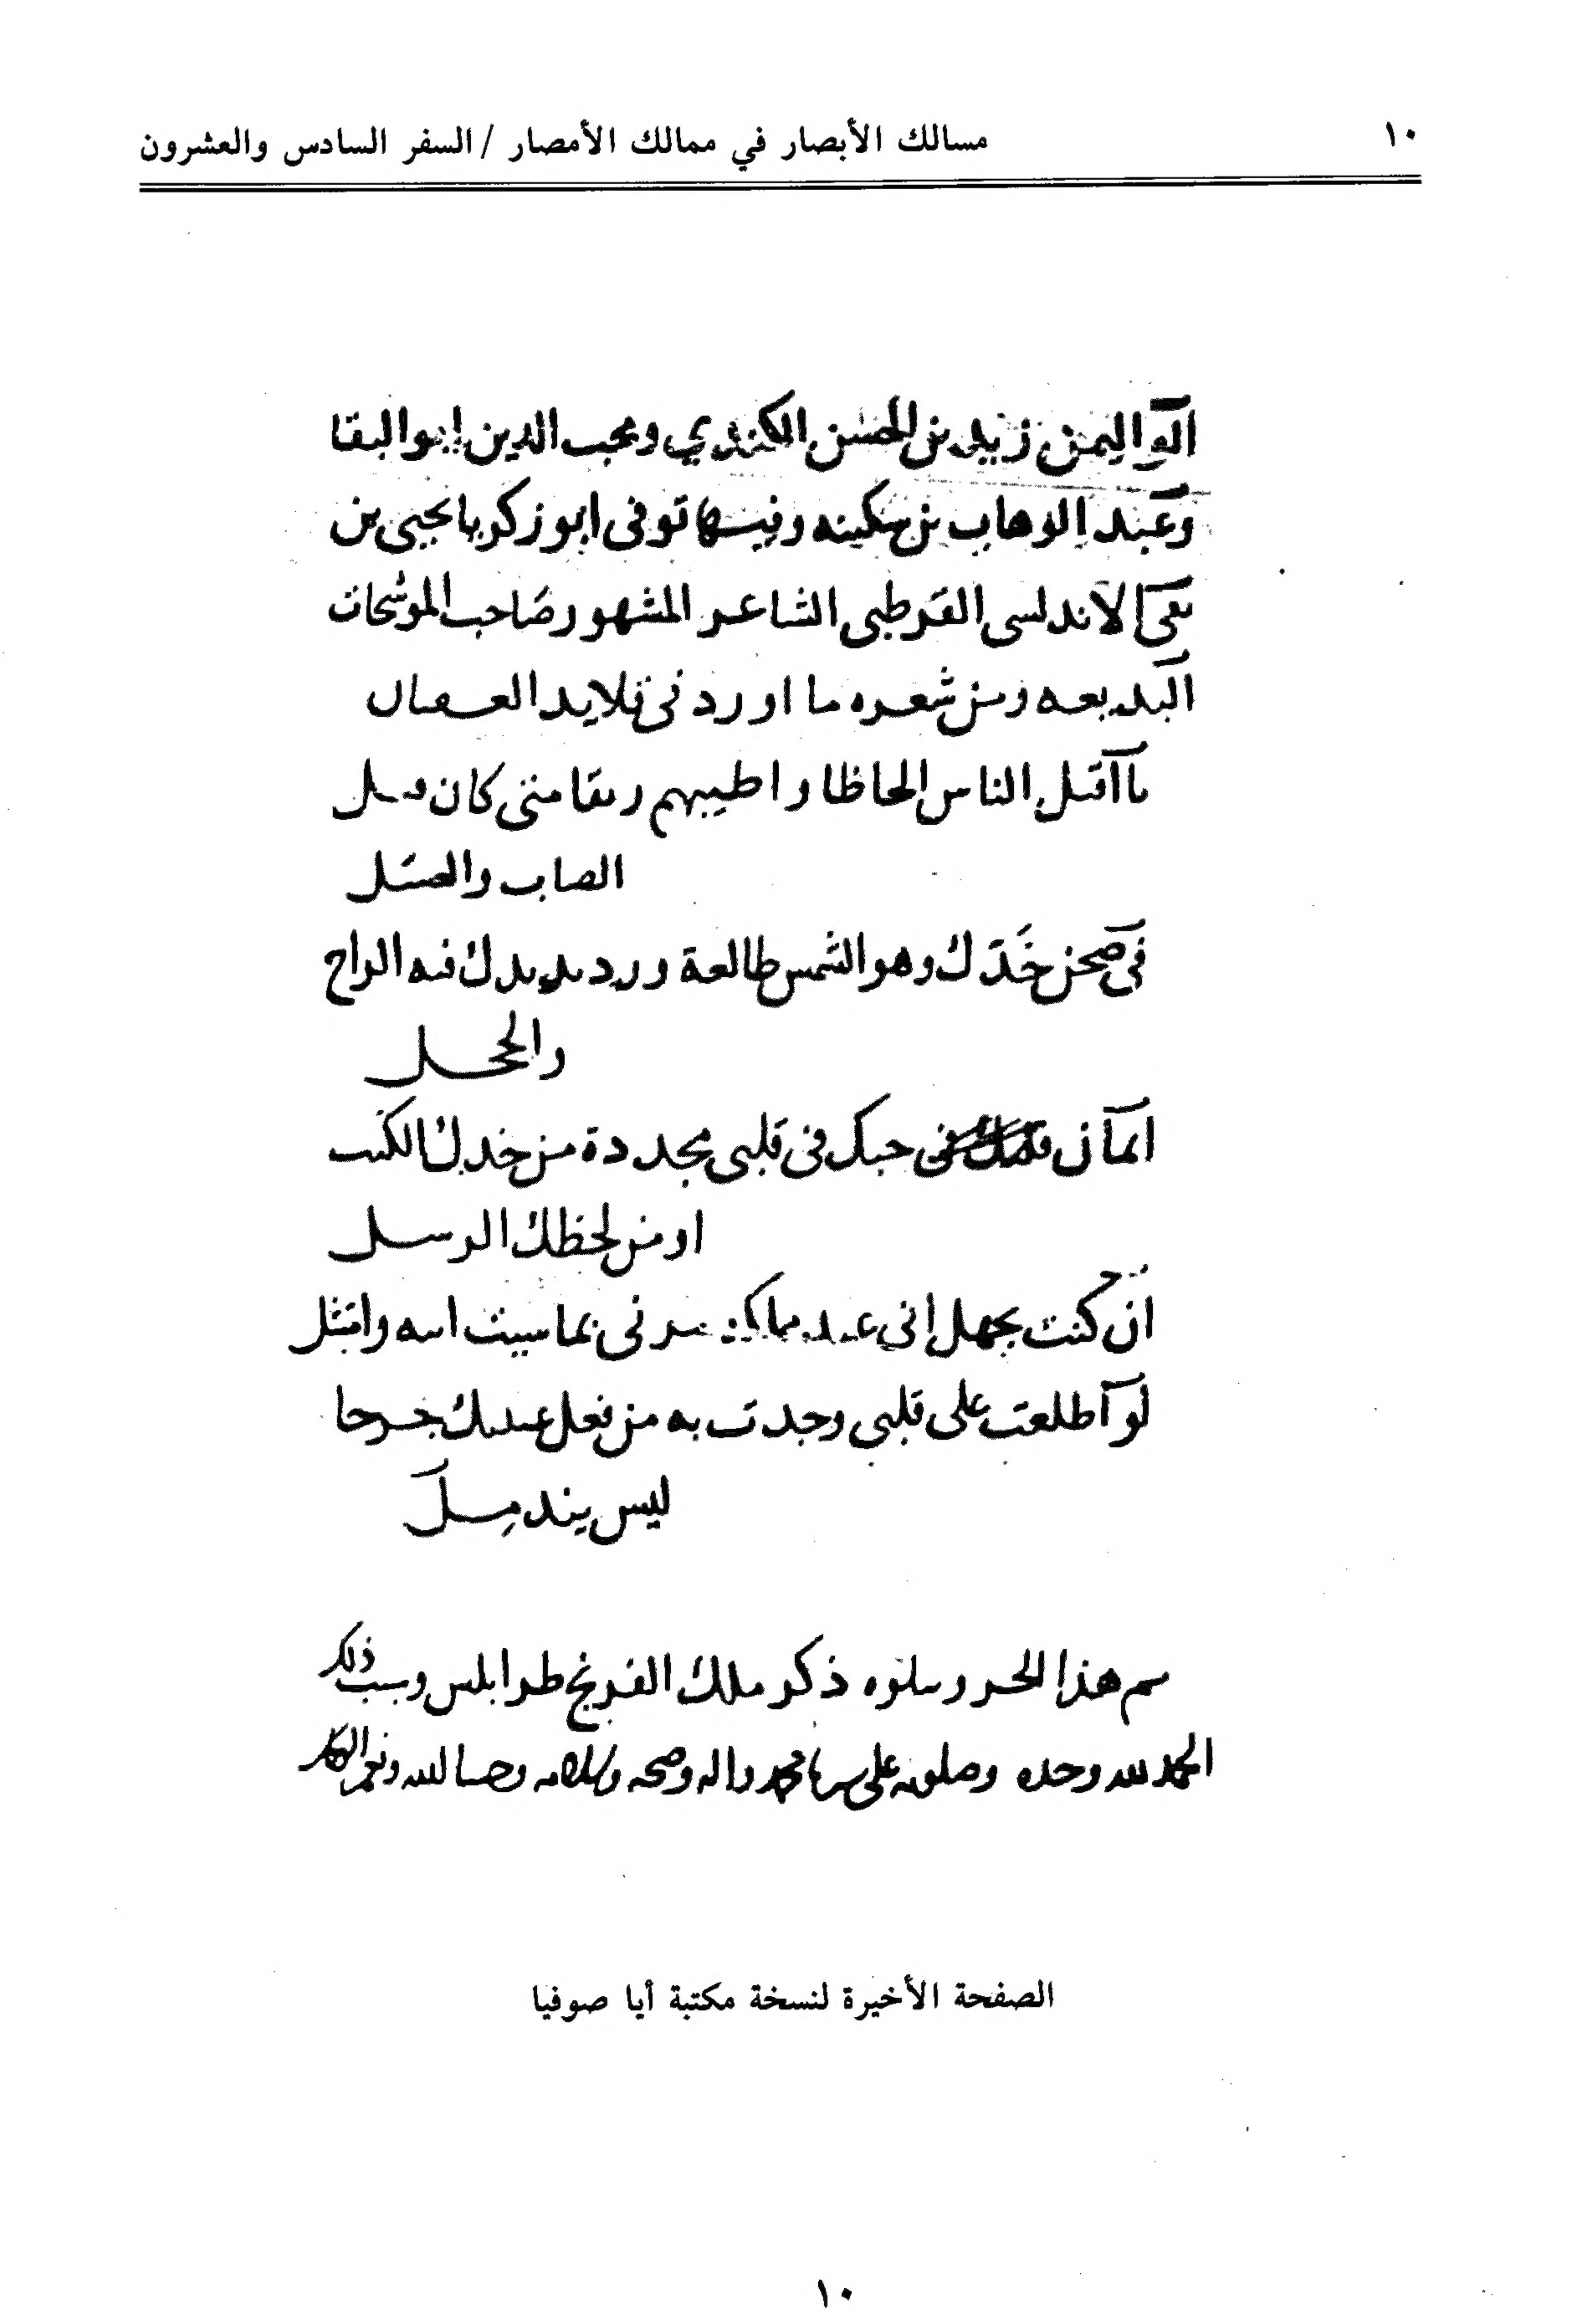 ١٠
مسالك الأبصار في ممالك الأمصار / السفر السادس والعشرون
ابو اليمن زيد بن الحسن الكندي ومحب الدين ابو البقا
وعبد الوهاب بن سكينه وفيها توفى ابو زكريا يحيى بن
بقى الاندلسى القرطبى الشاعر المشهور صاحب الموشحات
البديعه ومن شعره ما اورد فى قلايد العقيان
يا اقتل الناس الحاظا واطيبهم ريقا متى كان فيك
الصاب والعسل
فى صحن خدك وهو الشمس طالعة ورد يزيدك فيه الراح
والخجل
ايمان حبك فى قلبى مجددة من خدك الكتب
او من لحظك الرسل
ان كنت تجهل انى عبد مملكة مرنى بما شيت اته وامتثل
لو اطلعت على قلبى وجدت به من فعل عينيك جرحا
ليس يندمل
هذا الجزو يتلوه ذكر ملك الفرنج طرابلس وسبب ذلك
الحمد لله وحده وصلوته على محمد واله وصحبه وسلامه وحسبنا الله ونعم الوكيل
الصفحة الأخيرة لنسخة مكتبة أيا صوفيا
١٠